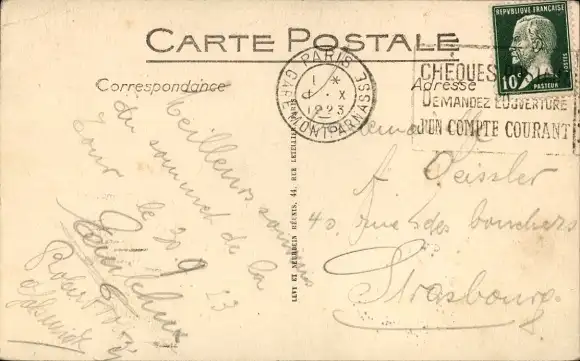 CARTE POSTALE
Correspondance
Adresse
RÉPUBLIQUE FRANÇAISE
POSTES
10c
PASTEUR
PARIS
1 *
X
1923
GARE MONTPARNASSE
CHÈQUES POSTAUX
DEMANDEZ L'OUVERTURE
D'UN COMPTE COURANT
LEVY ET NEURDEIN RÉUNIS, 44, RUE LETELLIER, PARIS
Meilleurs souvenirs
du sommet de la
Tour le 30 9 23
Robert
A Peissler
40, rue des bouchers
Strasbourg